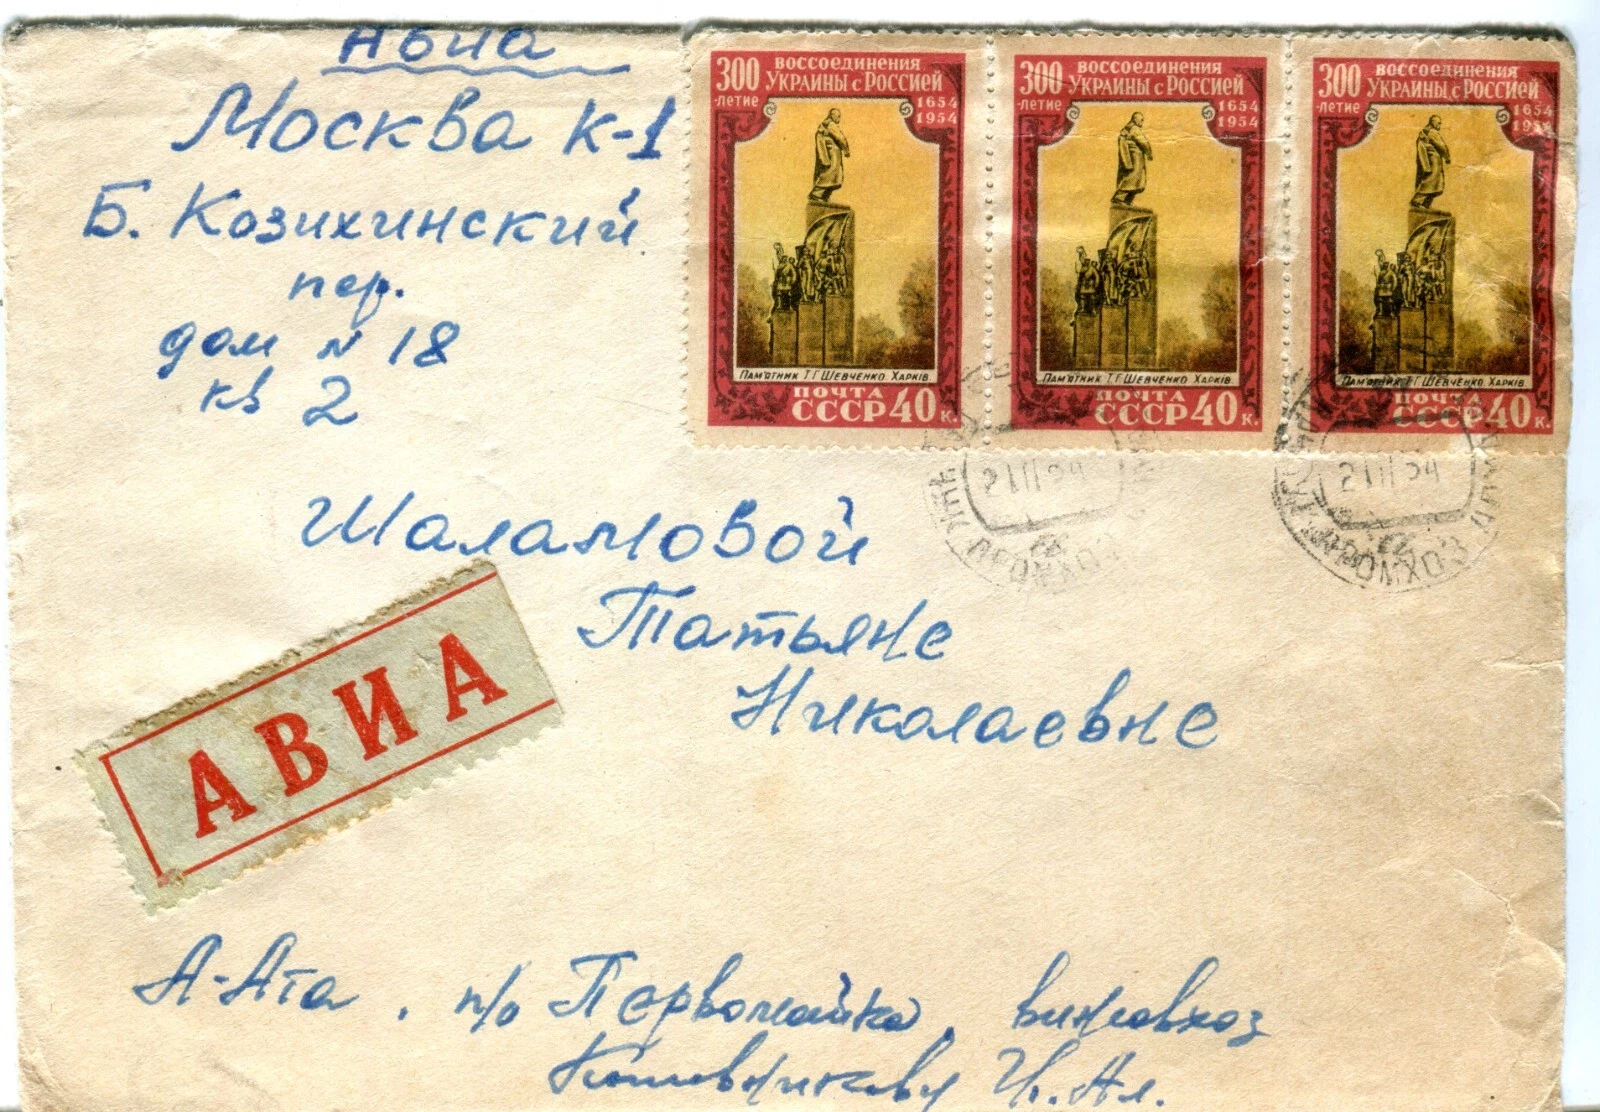 Авиа
Москва К-1
Б. Козихинский
пер.
дом № 18
кв 2
Шаламовой
Татьяне
Николаевне
АВИА
А-Ата, п/о Первомайка,
И. Ал.
300 ВОССОЕДИНЕНИЯ
-ЛЕТИЕ УКРАИНЫ с РОССИЕЙ
1654
1954
ПАМ'ЯТНИК Т.Г.ШЕВЧЕНКО. ХАРКІВ.
ПОЧТА
СССР 40 К.
300 ВОССОЕДИНЕНИЯ
-ЛЕТИЕ УКРАИНЫ с РОССИЕЙ
1654
1954
ПАМ'ЯТНИК Т.Г.ШЕВЧЕНКО. ХАРКІВ.
ПОЧТА
СССР 40 К.
300 ВОССОЕДИНЕНИЯ
-ЛЕТИЕ УКРАИНЫ с РОССИЕЙ
1654
1954
ПАМ'ЯТНИК Т.Г.ШЕВЧЕНКО. ХАРКІВ.
ПОЧТА
СССР 40 К.
ПРОМХОЗ
ПРОМХОЗ